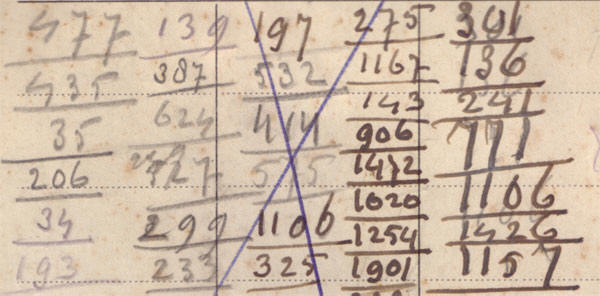 477 139 197 275 301
435 387 532 1167 136
35 624 414 143 241
206 727 515 906 771
34 299 1106 1472 1106
193 233 325 1020 1426
1254 1157
1901